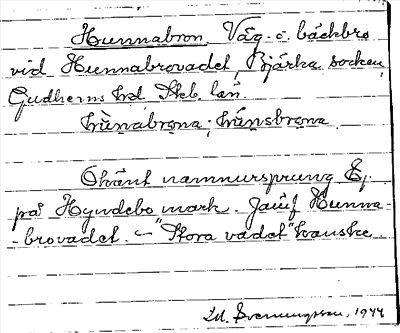 Hunnabron, Väg- o. bäckbro
vid Hunnabrovadet, Bjärka socken,
Gudhems hd Skb. län.
hùnabrọna; hùnsbrọna
Okänt namnursprung. Ej
på Hyndebo mark. Jämf Hunna-
-brovadet. – "Stora vadet" kanske.
Sveningsson, 1944